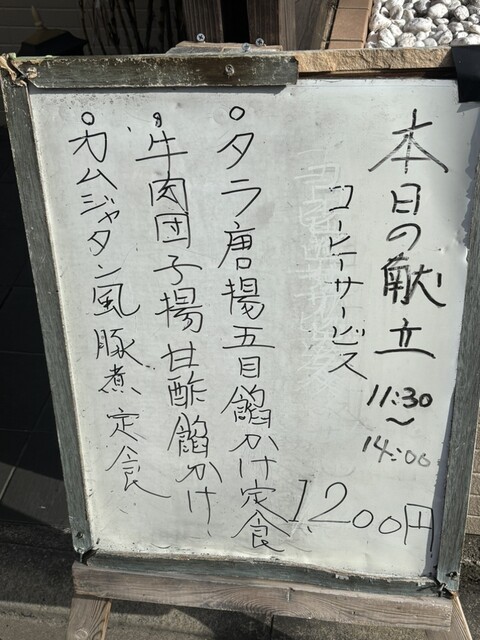 本日の献立
11:30
〜
14:00
コーヒーサービス
1200円
○タラ唐揚五目餡かけ定食
○牛肉団子揚甘酢餡かけ
○カムジャタン風豚煮定食